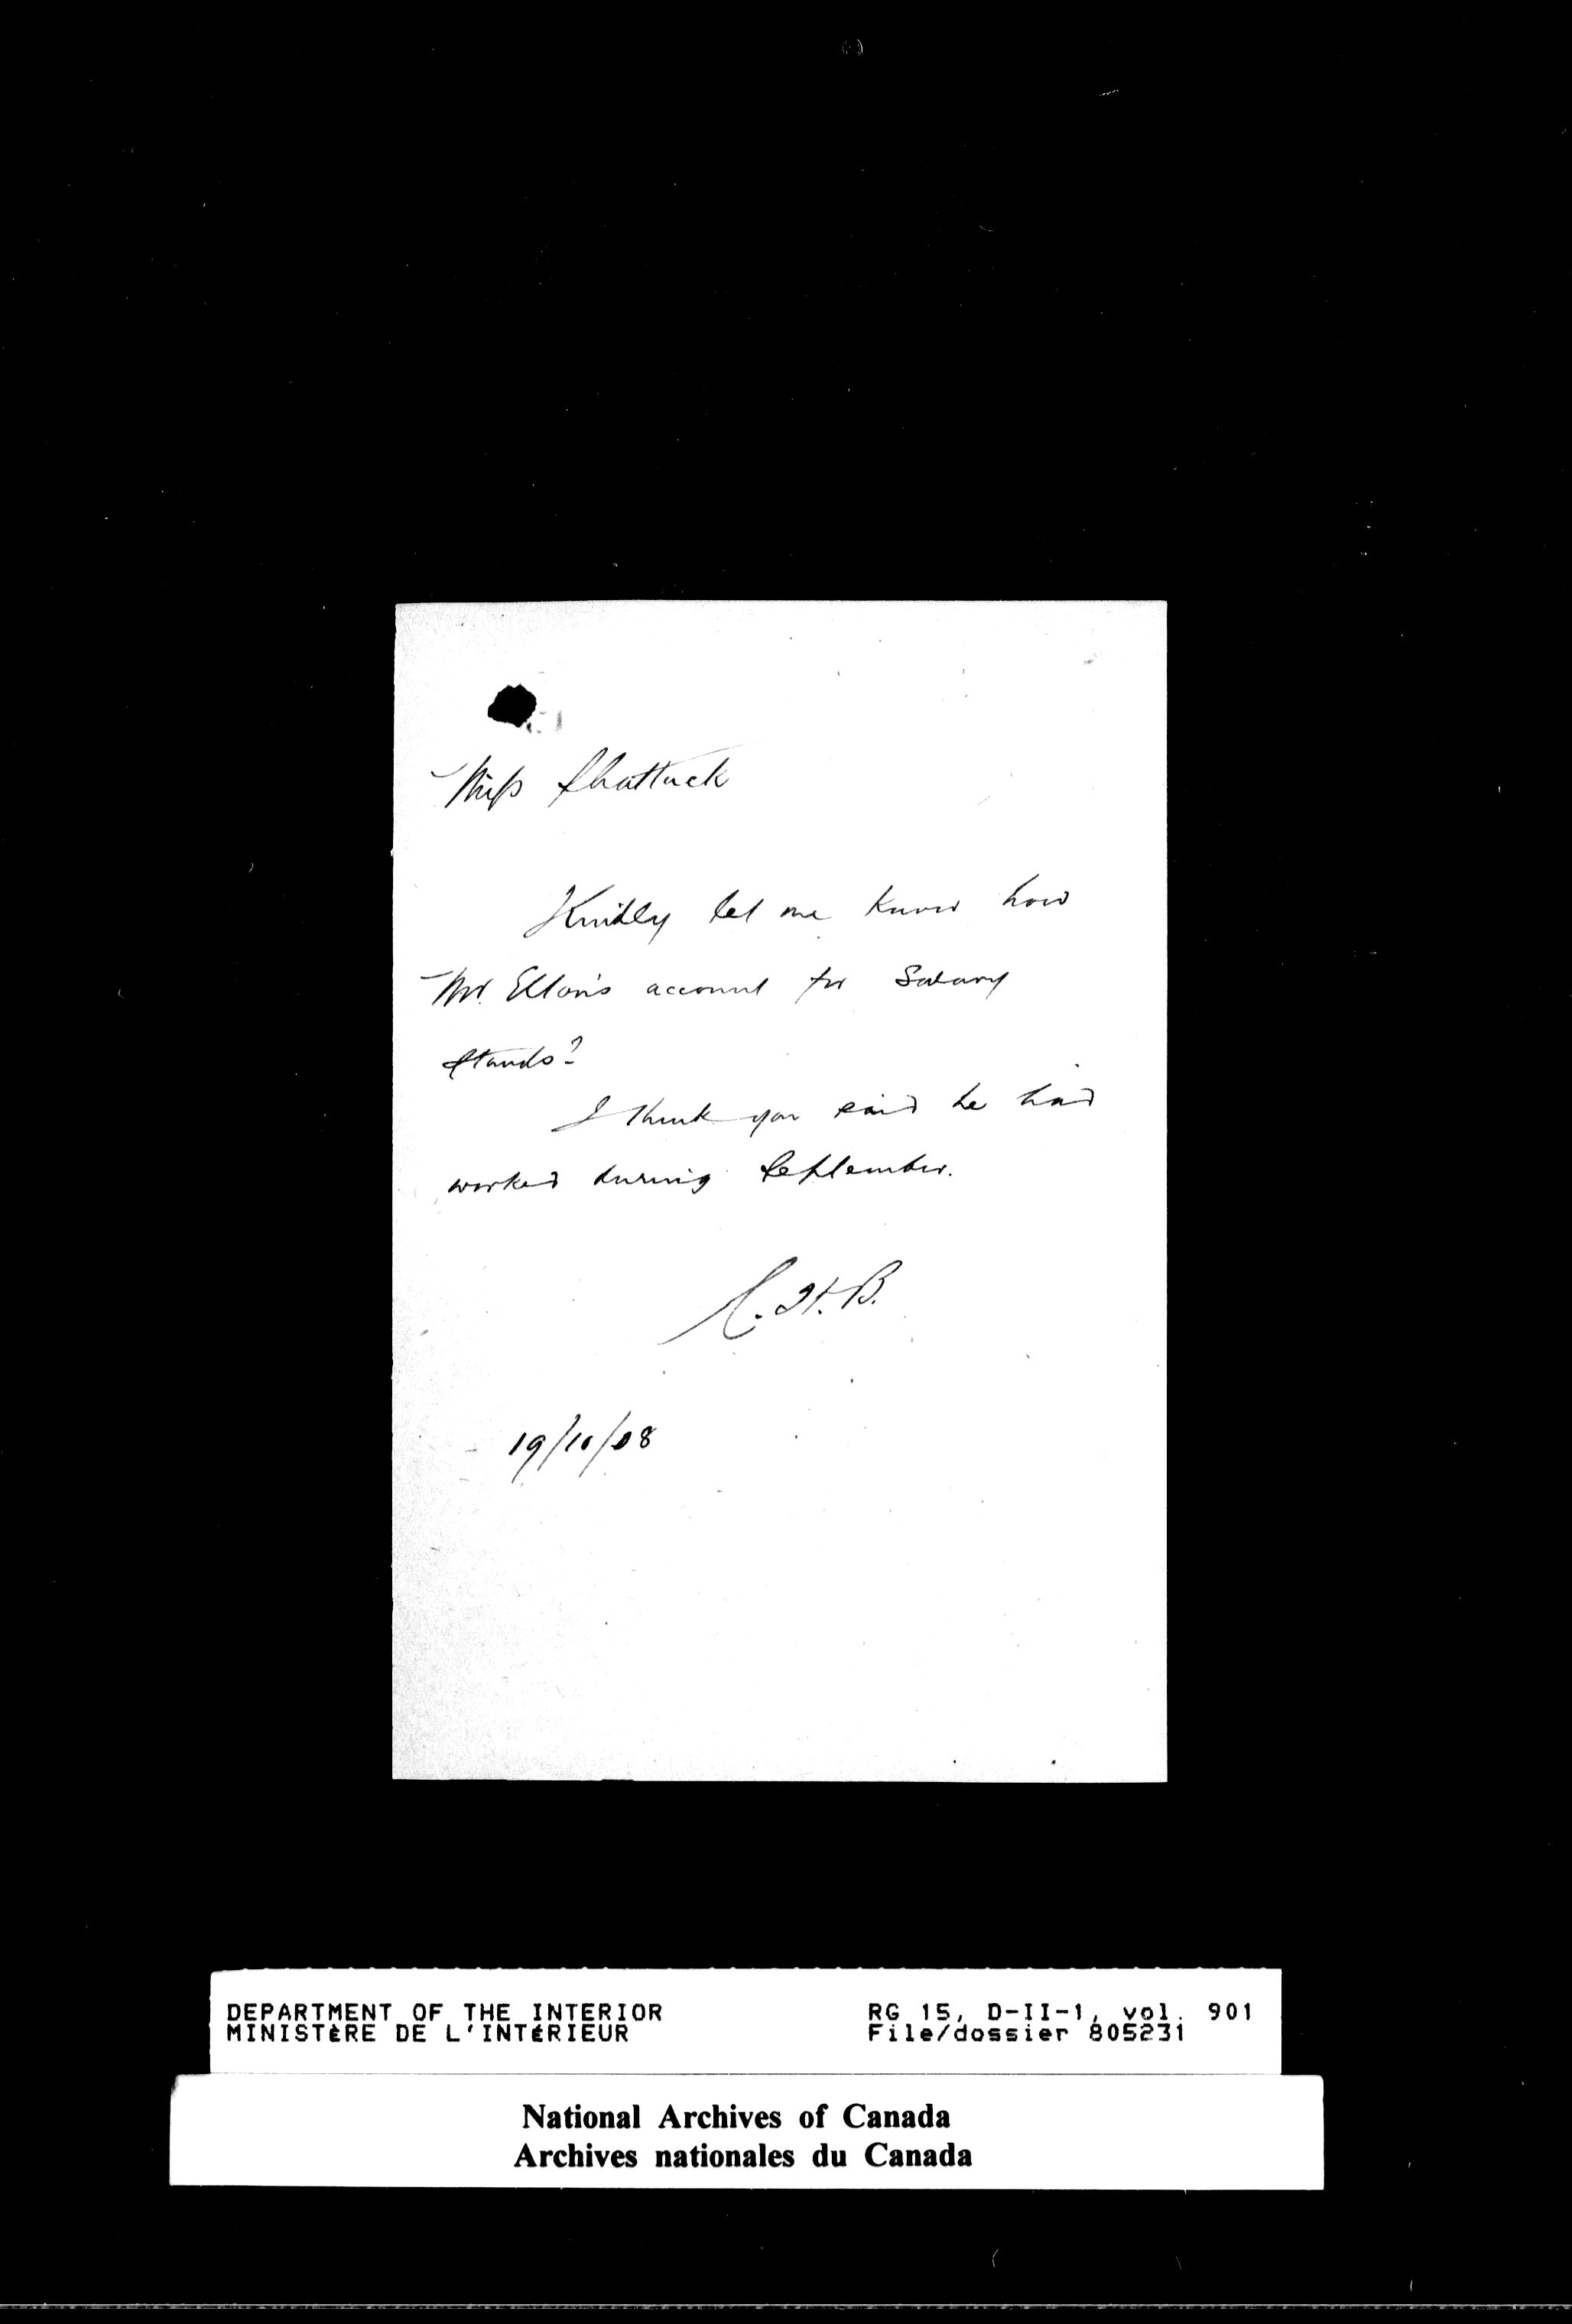 Miss Shattuck
Kindly let me know how
Mr. Elton's account for Salary
stands?
I think you said he had
worked during September.
C. H. B.
19/10/08
DEPARTMENT OF THE INTERIOR RG 15, D-II-1, vol. 901
MINISTÈRE DE L'INTÉRIEUR File/dossier 805231
National Archives of Canada
Archives nationales du Canada